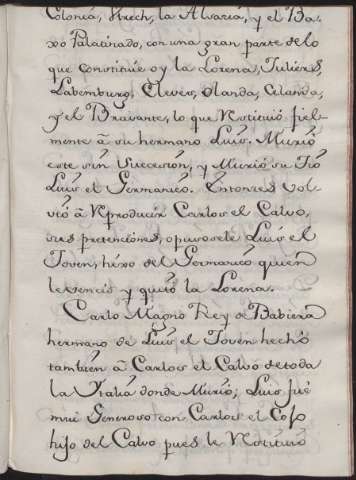 Colonea, Utrech, la Alsacia, y el Ba-
xo Palatinado, con una gran parte de lo
que constitúe oy la Lorena, Julieres,
Luxemburg, Cleves, Olanda, Celanda,
y el Bravante, lo que Restituió fiel-
mente â su hermano Luis. Murió
este sin succesion, y Murió su Tio
Luis el Germanico. Entonces vol-
vió â Reproducir Carlos el Calvo,
sus pretenciones, opusosele Luis el
Joven, hijo del Germanico quien
le venció y quitó la Lorena.
Carlo Magno Rey de Babiera
hermano de Luis el Joven hechó
tambien â Carlos el Calvo de toda
la Italia donde Murió; Luis fue
mui Generoso con Carlos el
hijo del Calvo pues le Restituió